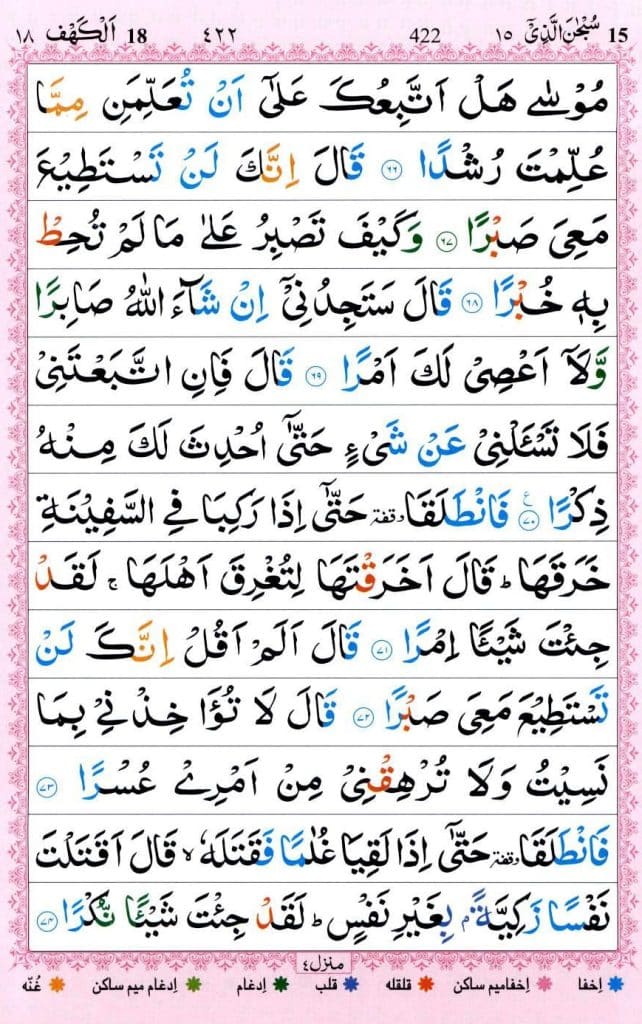 15 سُبْحٰنَ الَّذِیْۤ ١٥ 422 ٤٢٢ 18 اَلْكَهْف ١٨
مُوْسٰی هَلْ اَتَّبِعُكَ عَلٰۤی اَنْ تُعَلِّمَنِ مِمَّا
عُلِّمْتَ رُشْدًا ﴿٦٦﴾ قَالَ اِنَّكَ لَنْ تَسْتَطِیْعَ
مَعِیَ صَبْرًا ﴿٦٧﴾ وَكَیْفَ تَصْبِرُ عَلٰی مَا لَمْ تُحِطْ
بِهٖ خُبْرًا ﴿٦٨﴾ قَالَ سَتَجِدُنِیْۤ اِنْ شَآءَ اللّٰهُ صَابِرًا
وَّلَاۤ اَعْصِیْ لَكَ اَمْرًا ﴿٦٩﴾ قَالَ فَاِنِ اتَّبَعْتَنِیْ
فَلَا تَسْـَٔلْنِیْ عَنْ شَیْءٍ حَتّٰۤی اُحْدِثَ لَكَ مِنْهُ
ذِكْرًا ﴿٧٠﴾ ع فَانْطَلَقَا وقفة حَتّٰۤی اِذَا رَكِبَا فِی السَّفِیْنَةِ
خَرَقَهَا ؕ قَالَ اَخَرَقْتَهَا لِتُغْرِقَ اَهْلَهَا ۚ لَقَدْ
جِئْتَ شَیْـًٔا اِمْرًا ﴿٧١﴾ قَالَ اَلَمْ اَقُلْ اِنَّكَ لَنْ
تَسْتَطِیْعَ مَعِیَ صَبْرًا ﴿٧٢﴾ قَالَ لَا تُؤَاخِذْنِیْ بِمَا
نَسِیْتُ وَلَا تُرْهِقْنِیْ مِنْ اَمْرِیْ عُسْرًا ﴿٧٣﴾
فَانْطَلَقَا وقفة حَتّٰۤی اِذَا لَقِیَا غُلٰمًا فَقَتَلَهٗ ۙ قَالَ اَقَتَلْتَ
نَفْسًا زَكِیَّةًۢ بِغَیْرِ نَفْسٍ ؕ لَقَدْ جِئْتَ شَیْـًٔا نُّكْرًا ﴿٧٤﴾
منزل ٤
اِخفا اِخفامیم ساكن قلقله قلب اِدغام اِدغام میم ساكن غُنّه